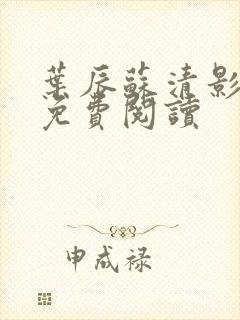 葉辰蘇清影
免費閱讀
申成禄